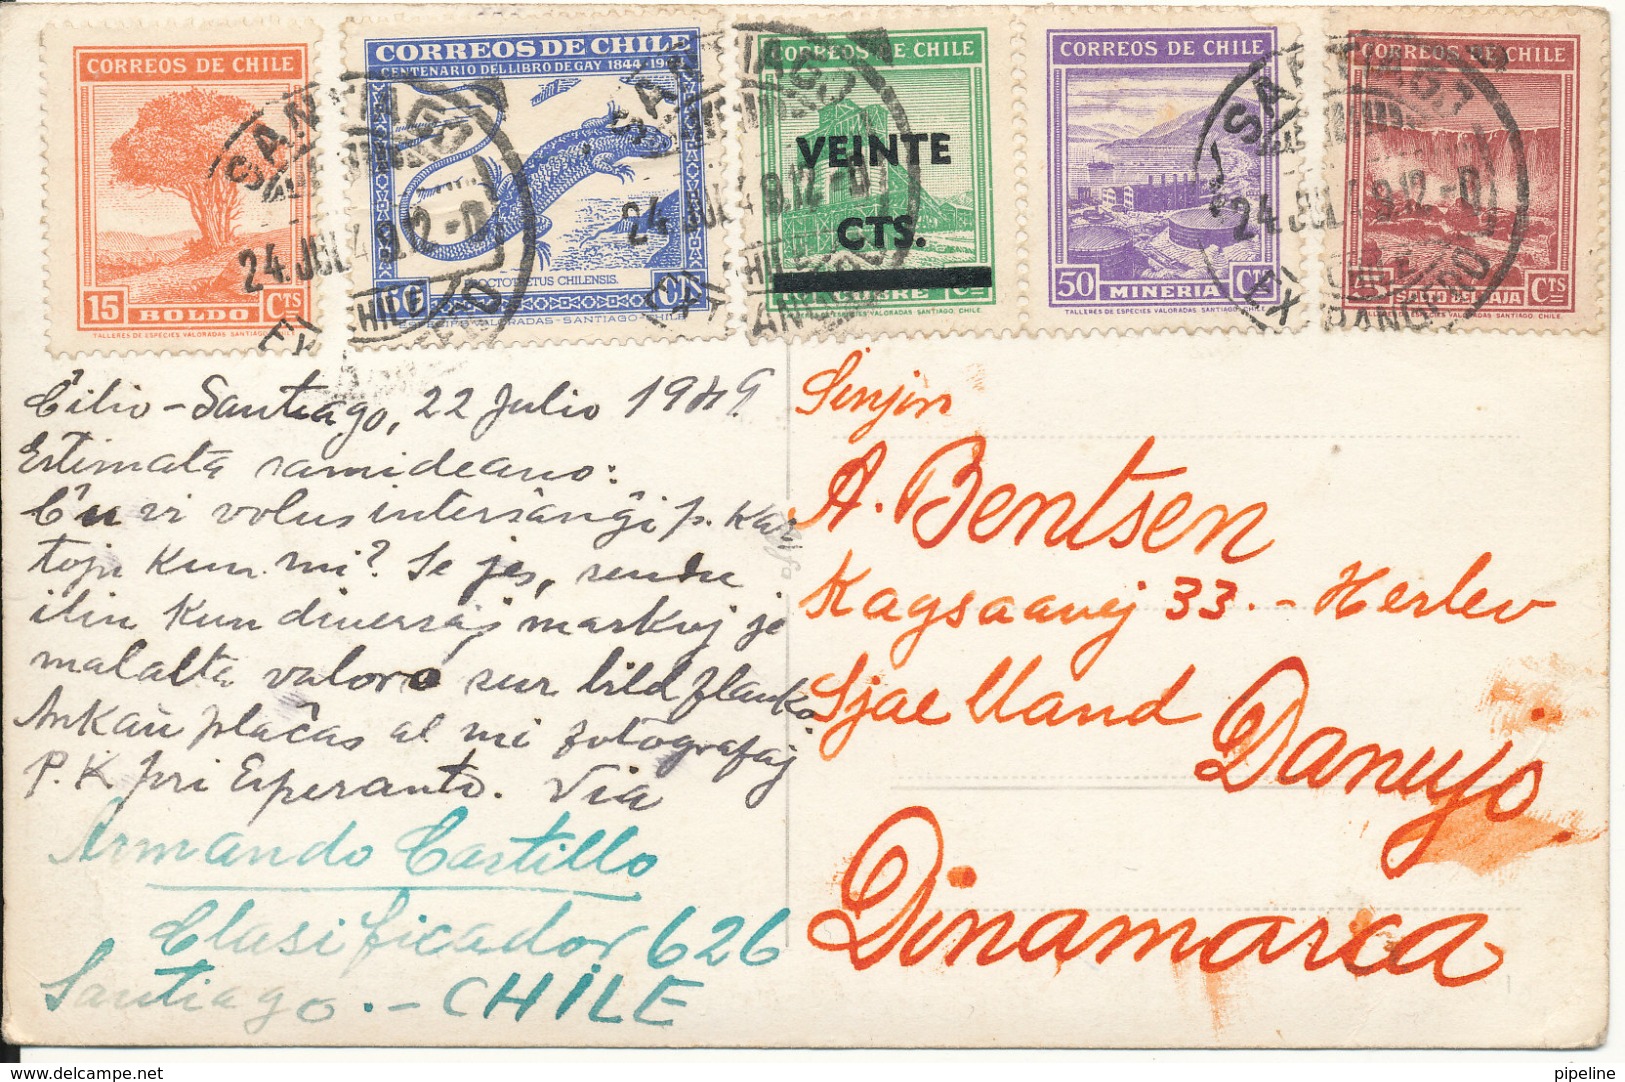 CORREOS DE CHILE
15 CTS
BOLDO
TALLERES DE ESPECIES VALORADAS SANTIAGO CHILE
CORREOS DE CHILE
CENTENARIO DEL LIBRO DE GAY 1844-19
CHILENSIS.
60 CTS
VALORADAS-SANTIAGO
CORREOS DE CHILE
VEINTE
CTS.
COBRE
CORREOS DE CHILE
50 CTS
MINERIA
TALLERES DE ESPECIES VALORADAS SANTIAGO, CHILE.
CORREOS DE CHILE
SALTO DEL LAJA CTS
SANTIAGO
24. JUL 49.12-D
CHILE
SANTIAGO
24 JUL 49.12-D
CHILE
SANTIAGO
24 JUL 49.12-D
Ĉilio-Santiago, 22 Julio 1949
Estimata samideano:
Ĉu vi volus interŝanĝi p. Kar
tojn Kun mi? Se jes, sendu
ilin Kun diversaj markoj je
malalta valoro sur bildflanko
Ankaŭ plaĉas al mi fotografaj
P.K pri Esperanto. Via
Armando Castillo
Clasificador 626
Santiago.-CHILE
Sinjin
A. Bentsen
Kagsaavej 33.-Herlev
Sjaelland
Danujo.
Dinamarca
pipeline